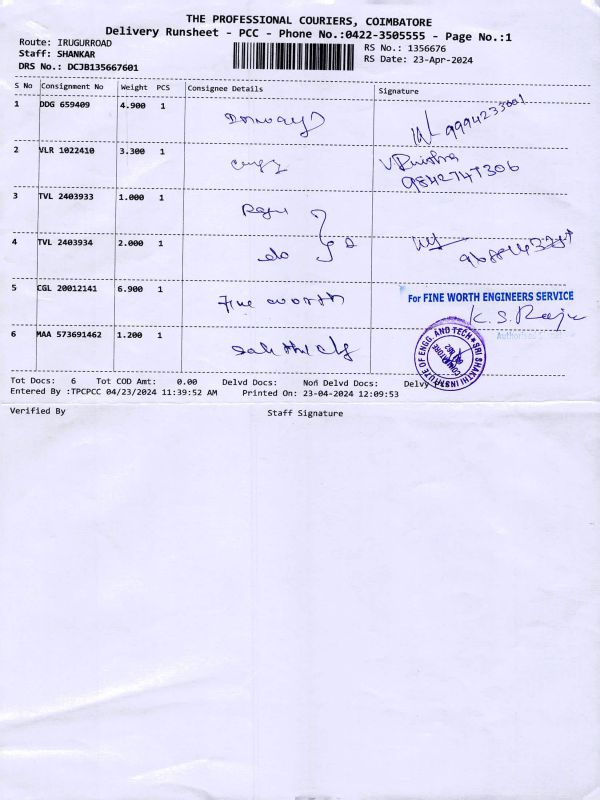 THE PROFESSIONAL COURIERS, COIMBATORE
Delivery Runsheet - PCC - Phone No.:0422-3505555 - Page No.:1
Route: IRUGURROAD
Staff: SHANKAR
DRS No.: DCJB135667601
RS No.: 1356676
RS Date: 23-Apr-2024
S No Consignment No Weight PCS Consignee Details Signature
1 DDG 659409 4.900 1
9994233001
2 VLR 1022410 3.300 1
9842747306
3 TVL 2403933 1.000 1 Raju
4 TVL 2403934 2.000 1 do
5 CGL 20012141 6.900 1 Fine worth
For FINE WORTH ENGINEERS SERVICE
K. S. Raju
6 MAA 573691462 1.200 1 Sakthi clg
SRI SHAKTHI INSTITUTE OF ENGG. AND TECH
Tot Docs: 6 Tot COD Amt: 0.00 Delvd Docs: Non Delvd Docs: Delvy
Entered By :TPCPCC 04/23/2024 11:39:52 AM Printed On: 23-04-2024 12:09:53
Verified By Staff Signature